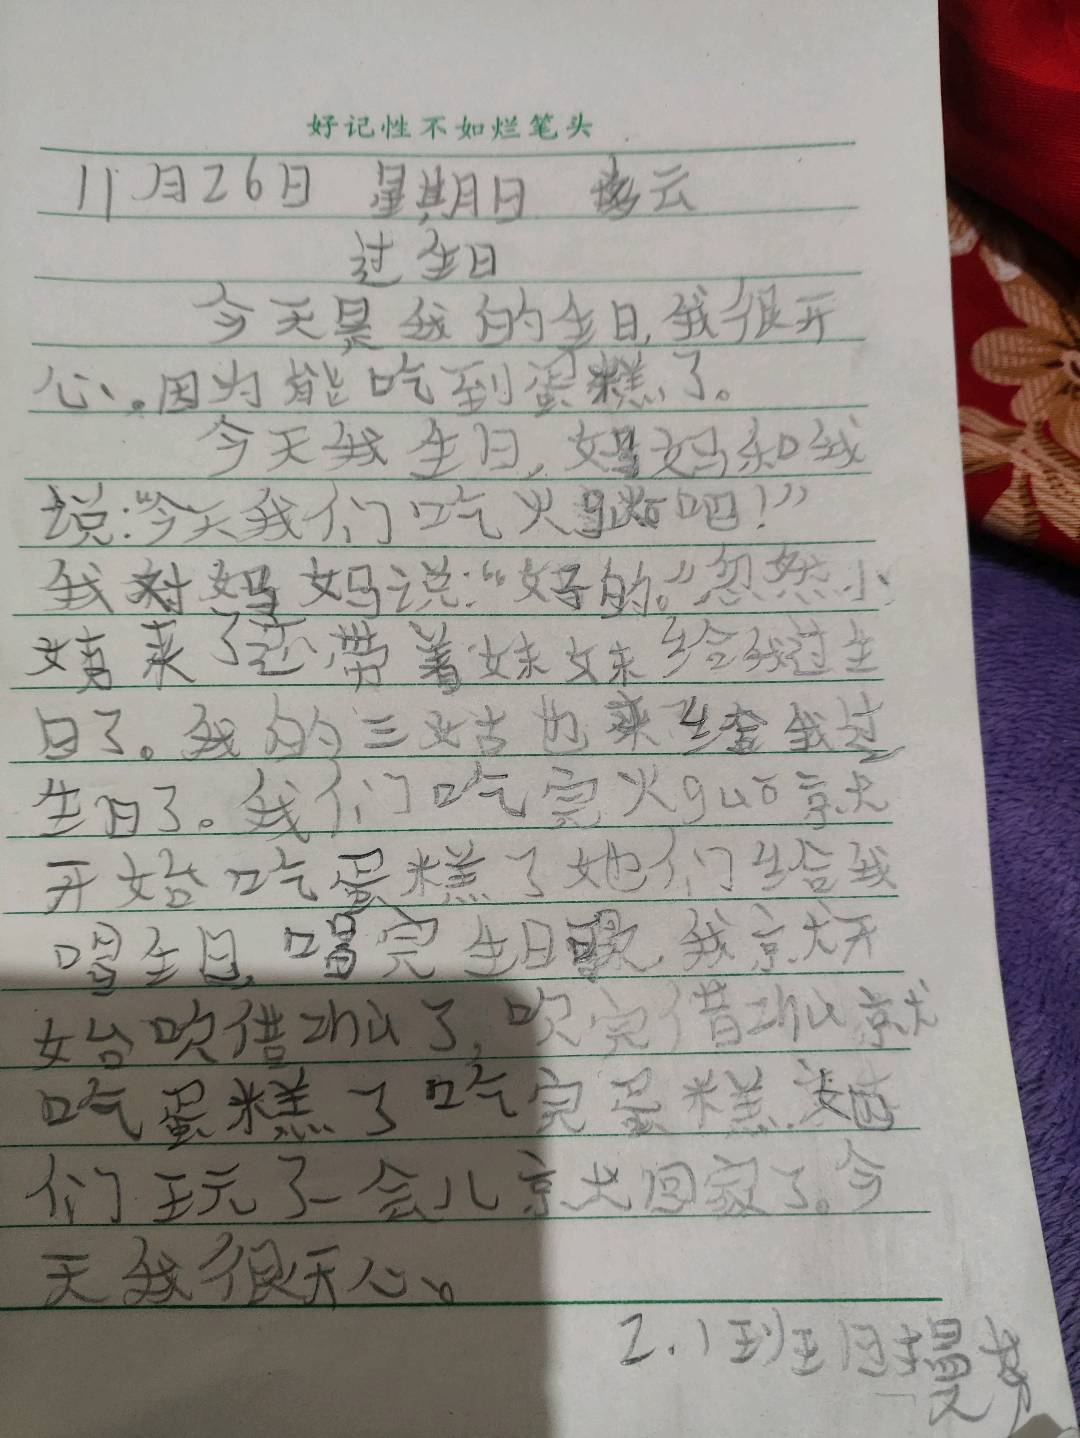 好记性不如烂笔头
11月26日 星期日 多云
过生日
今天是我的生日,我很开
心。因为能吃到蛋糕了。
今天我生日,妈妈和我
说:“今天我们吃火guō吧!”
我对妈妈说:“好的。”忽然小
姨来了还带着妹妹给我过生
日了。我的三姑也来给我过
生日了。我们吃完火guō就
开始吃蛋糕了她们给我
唱生日,唱完生日歌,我就开
始吹借zhú了,吹完借zhú就
吃蛋糕了吃完蛋糕
们玩了一会儿就回家了。今
天我很天心。
2.1班王